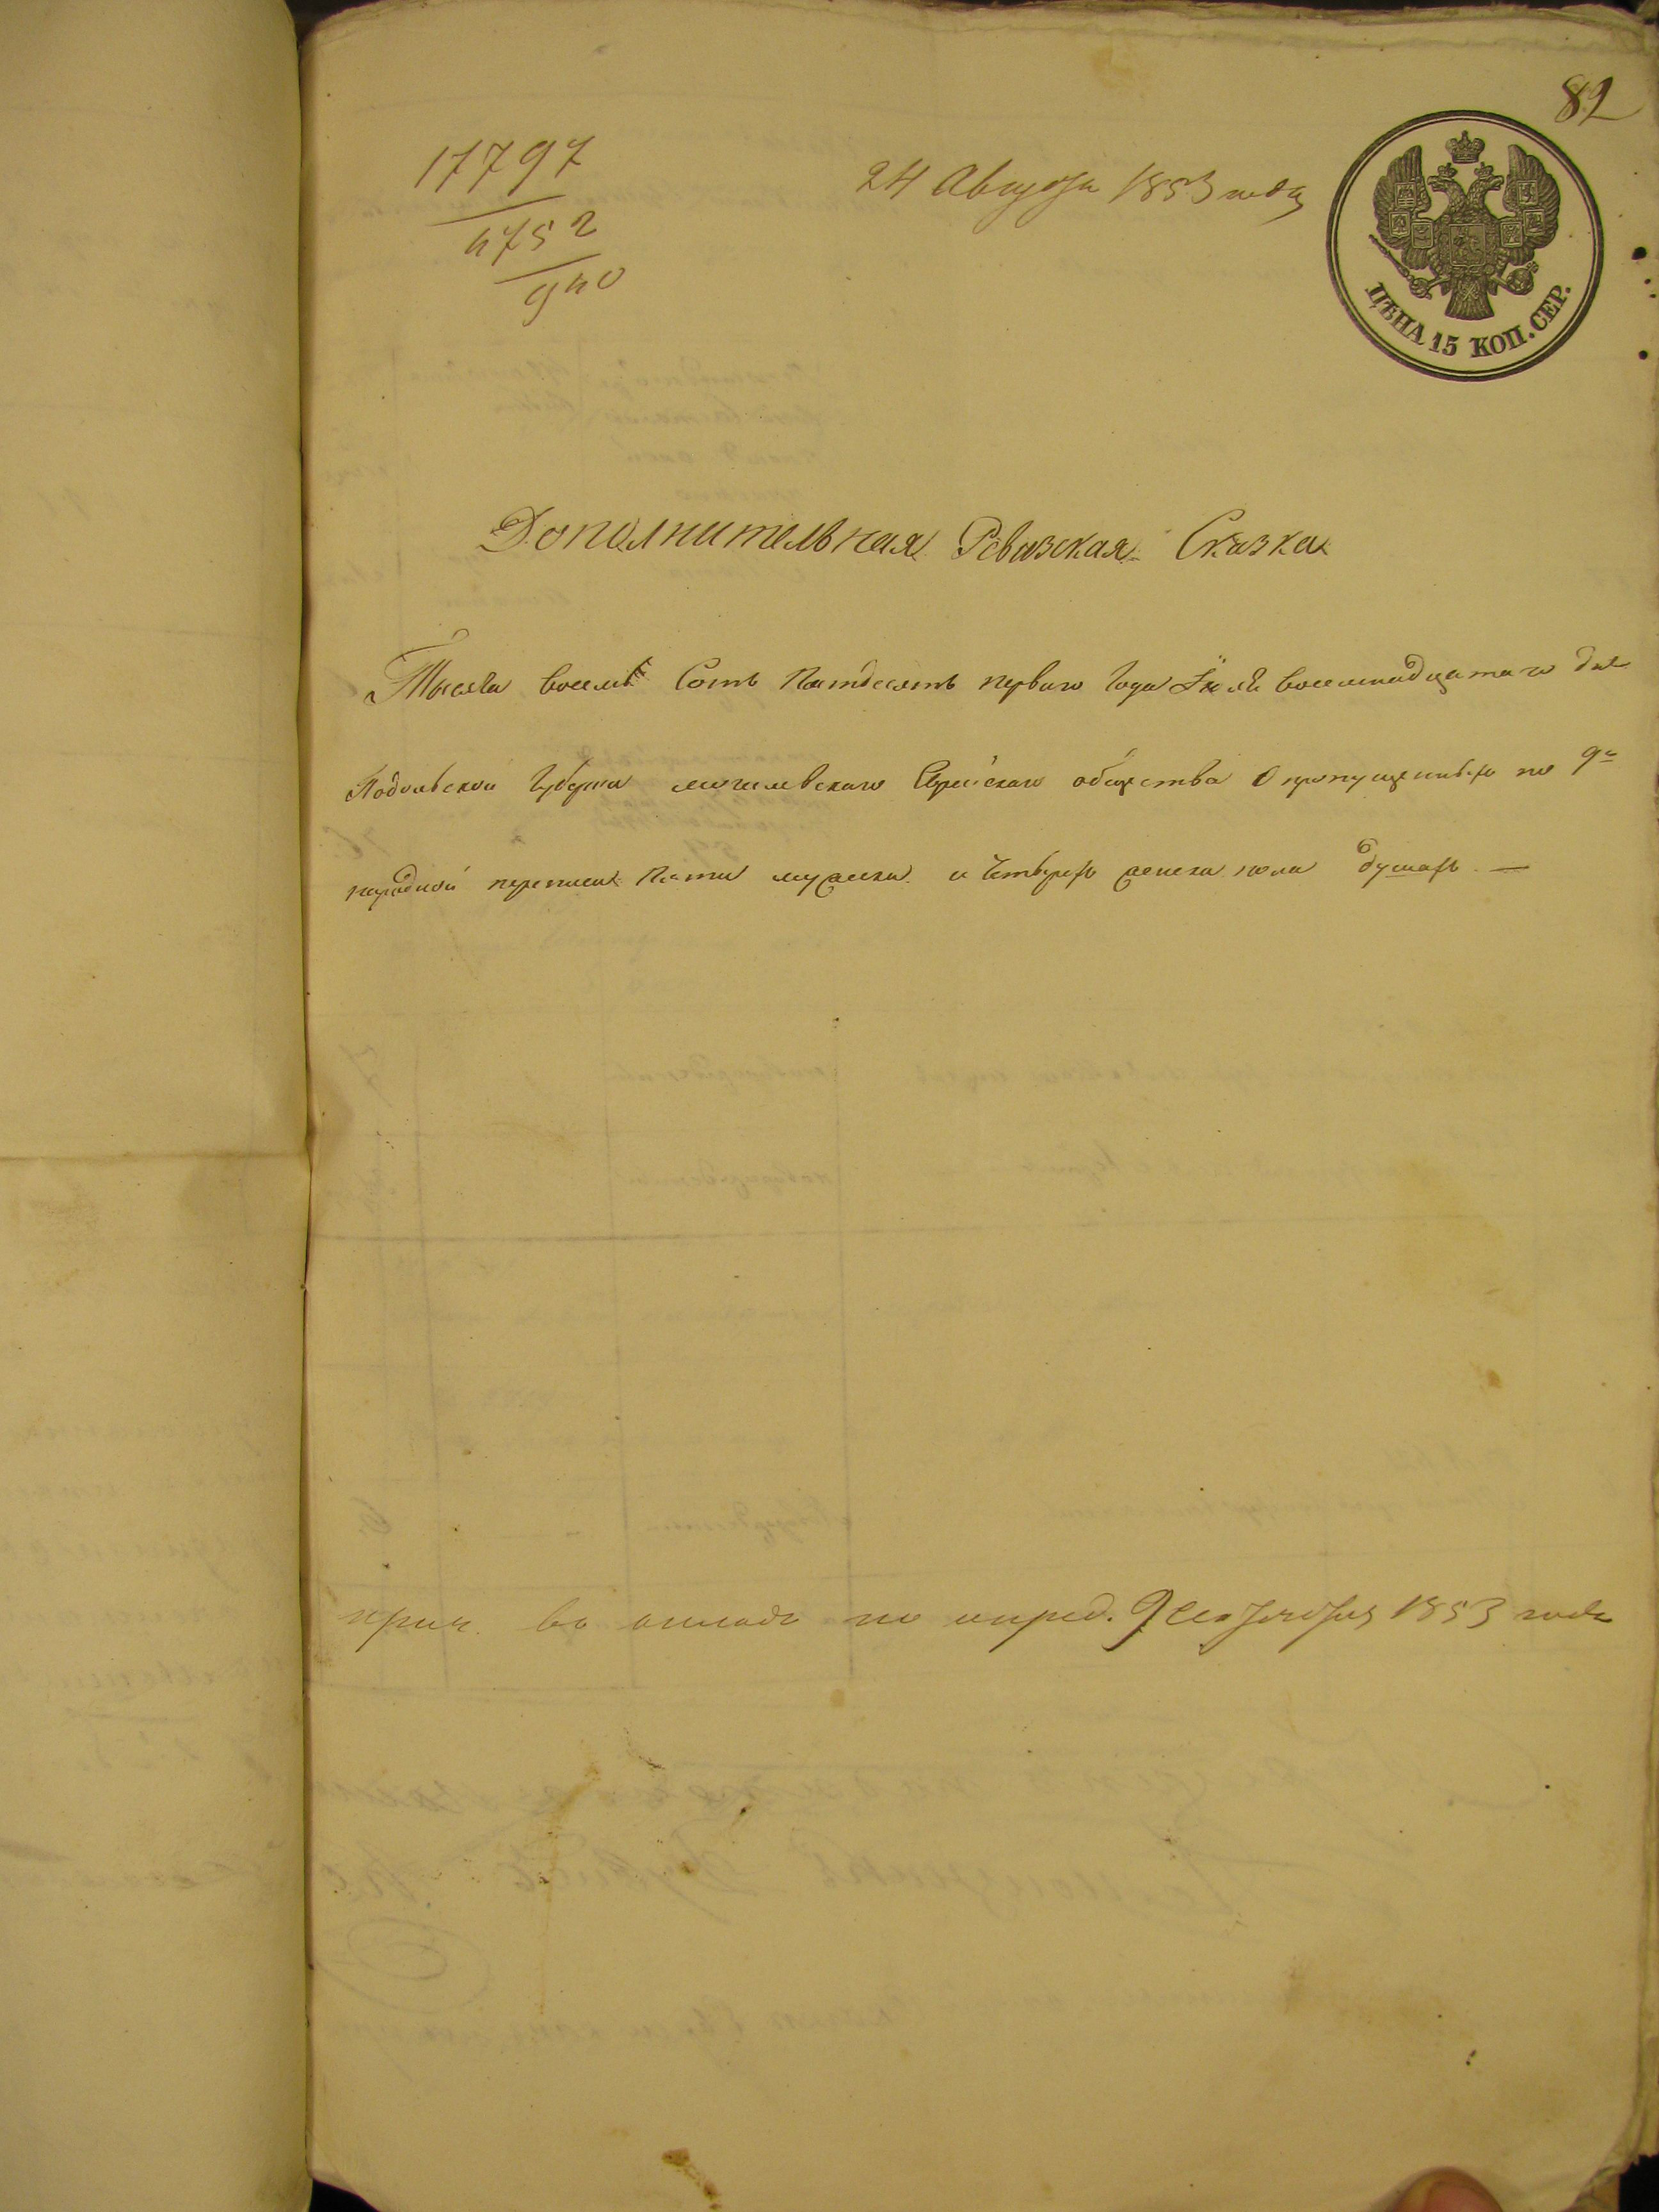 82
17797
4752
940
24 Августа 1853 года
ЦѢНА 15 КОП. СЕР.
Дополнительная Ревизская Сказка
Тысяча восемь Сотъ Пятдесятъ перваго Года Іюля восемнадцатаго дня
Подольской Губерніи могилевскаго Еврейскаго общества О пропущенныхъ по 9й
народной переписи Пяти мужеска и Четырехъ женска пола душахъ. —
прич. въ окладъ по опред. 9 Сентября 1853 года